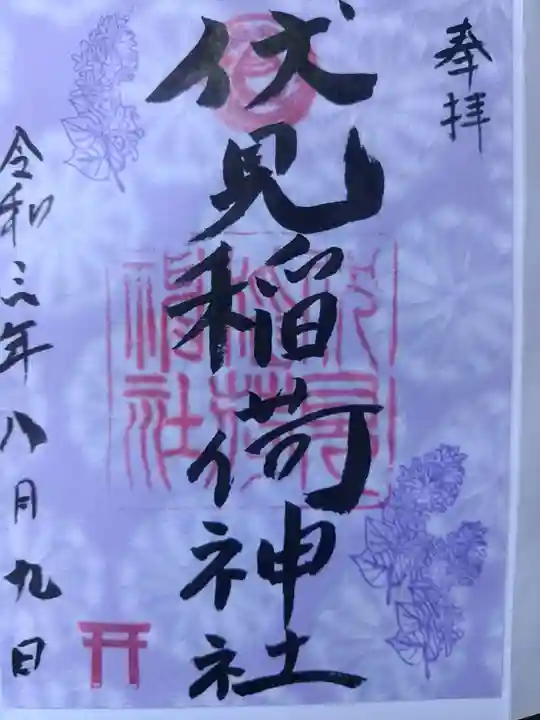 奉拝
伏見稲荷神社
令和三年八月九日